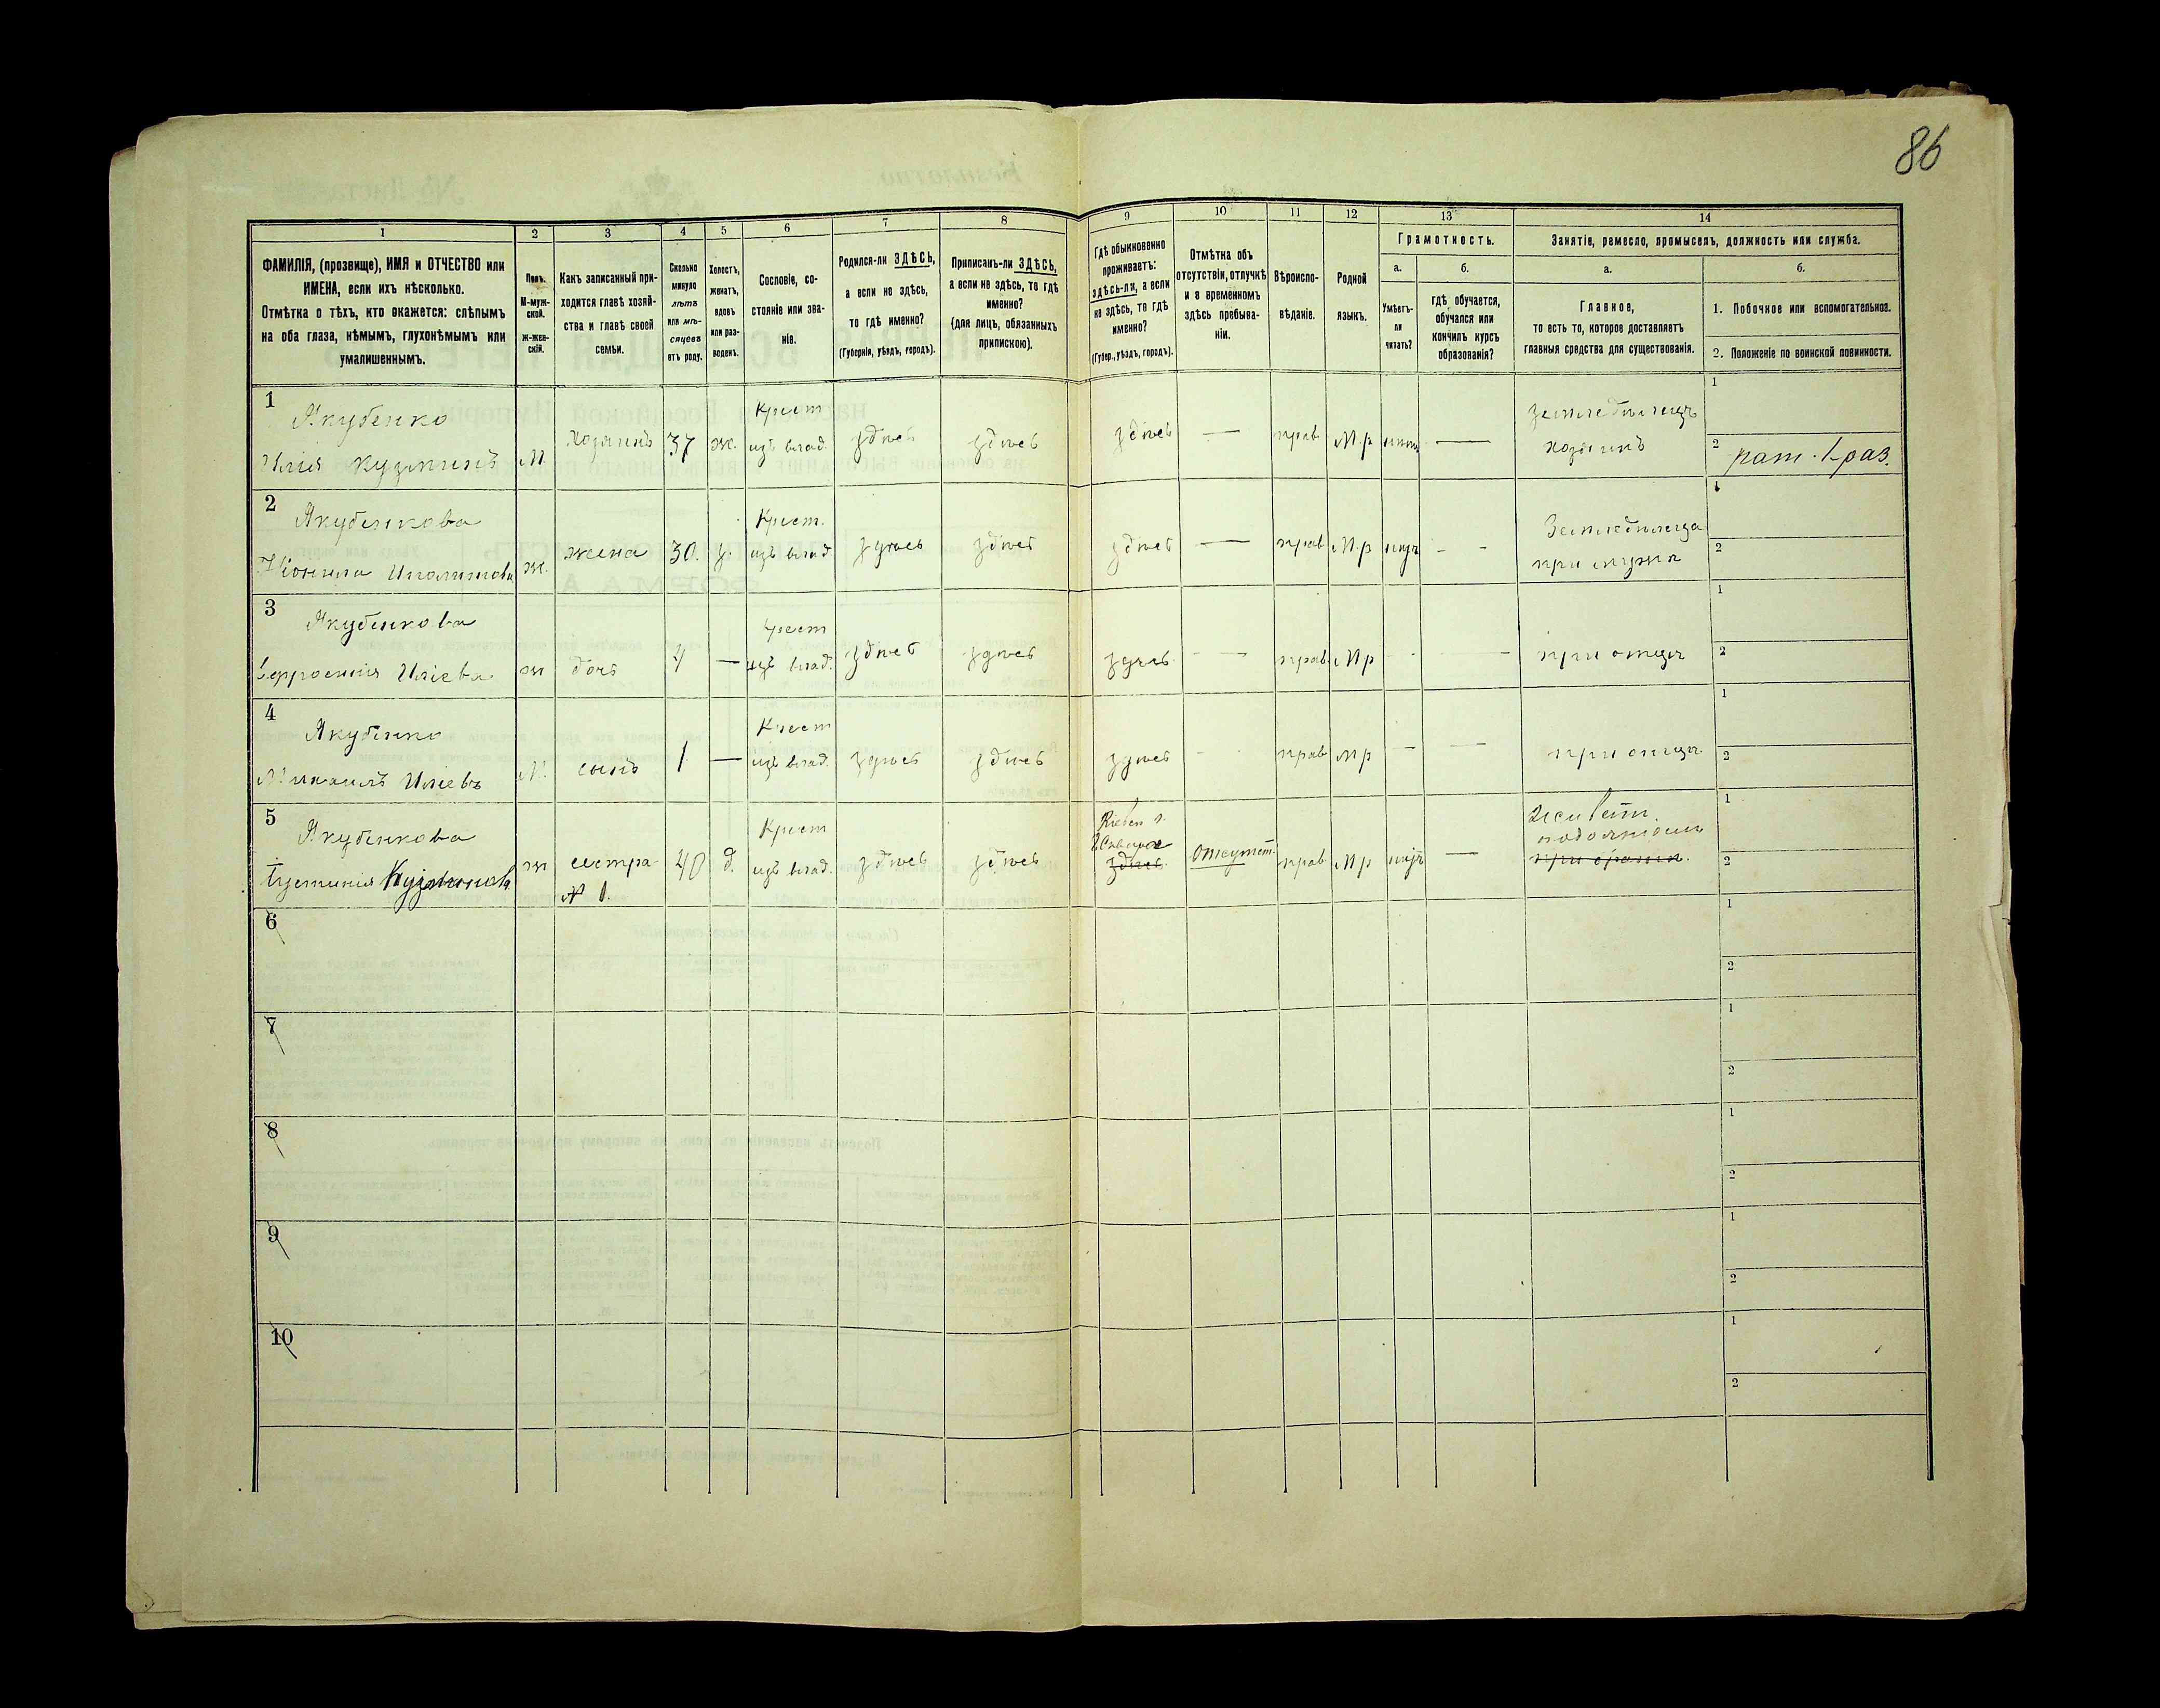 86
1 2 3 4 5 6 7 8 9 10 11 12 13 14
ФАМИЛІЯ, (прозвище), ИМЯ и ОТЧЕСТВО или
ИМЕНА, если ихъ нѣсколько.
Отмѣтка о тѣхъ, кто окажется: слѣпымъ
на оба глаза, нѣмымъ, глухонѣмымъ или
умалишеннымъ.
Полъ.
М-муж-
ской.
ж-жен-
скій.
Какъ записанный при-
ходится главѣ хозяй-
ства и главѣ своей
семьи.
Сколько
минуло
лѣтъ
или мѣ-
сяцевъ
отъ роду.
Холостъ,
женатъ,
вдовъ
или раз-
веденъ.
Сословіе, со-
стояніе или зва-
ніе.
Родился-ли ЗДѢСЬ,
а если не здѣсь,
то гдѣ именно?
(Губернія, уѣздъ, городъ).
Приписанъ-ли ЗДѢСЬ,
а если не здѣсь, то гдѣ
именно?
(для лицъ, обязанныхъ
припискою).
Гдѣ обыкновенно
проживаетъ:
здѣсь-ли, а если
не здѣсь, то гдѣ
именно?
(Губер., уѣздъ, городъ).
Отмѣтка объ
отсутствіи, отлучкѣ
и о временномъ
здѣсь пребыва-
ніи.
Вѣроиспо-
вѣданіе.
Родной
языкъ.
Грамотность.
а.
Умѣетъ-
ли
читать?
б.
гдѣ обучается,
обучался или
кончилъ курсъ
образованія?
Занятіе, ремесло, промыселъ, должность или служба.
а.
Главное,
то есть то, которое доставляетъ
главныя средства для существованія.
б.
1. Побочное или вспомогательное.
2. Положеніе по воинской повинности.
1 Якубенко Крест земледѣлецъ 1
Илія Кузминъ М хозяинъ 37 ж. изъ влад. здѣсь здѣсь здѣсь — прав М.р — хозяинъ 2 рат. 1 раз.
2 Якубенкова Крест. Земледѣлица 1
ж. жена 30. з. изъ влад. здѣсь здѣсь здѣсь — прав М.р - - при мужѣ 2
3 Якубенкова Крест 1
Иліева ж дочь — изъ влад. здѣсь здѣсь здѣсь - - прав М р - — при отцѣ 2
4 Якубенко Крест 1
Михаилъ Иліевъ М. сынъ 1 — изъ влад. здѣсь здѣсь здѣсь - прав М р — — при отцѣ 2
5 Якубенкова Крест 1
ж сестра 40 д. изъ влад. здѣсь здѣсь здѣсь отсутст. прав М р — при братѣ. 2
№ 1.
6 1
2
7 1
2
8 1
2
9 1
2
10 1
2